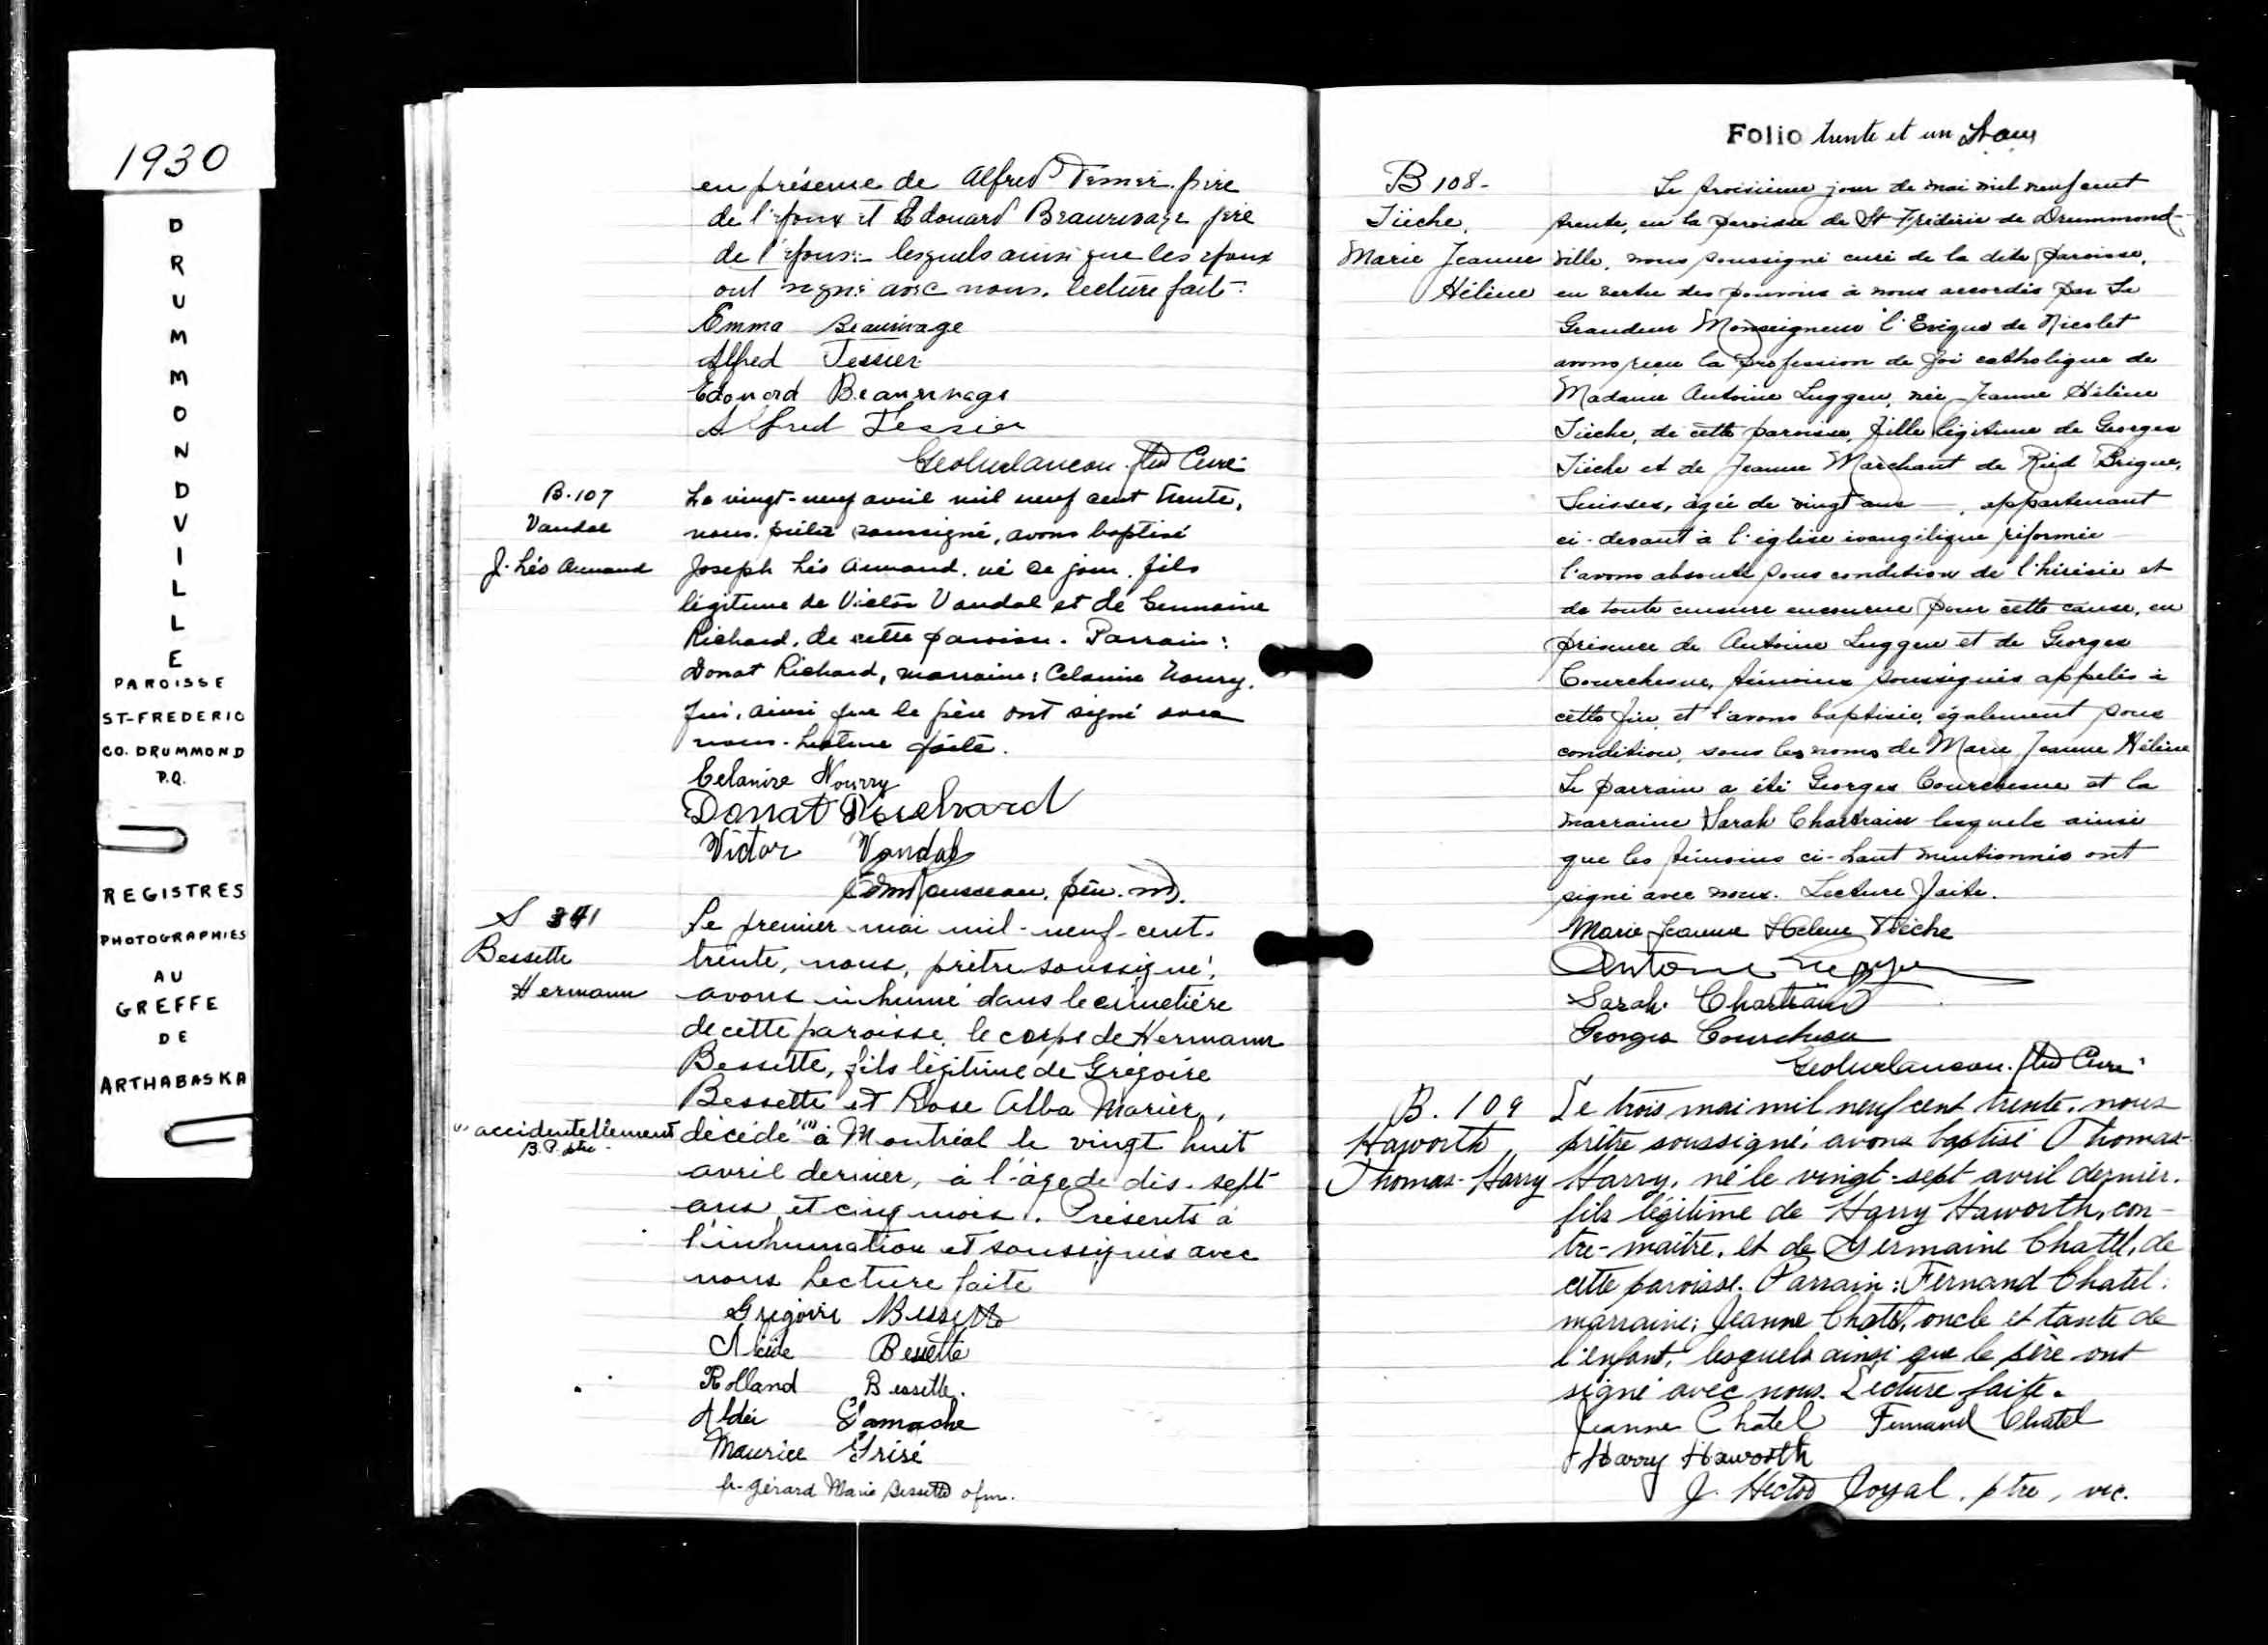 1930
DRUMMONDVILLE
PAROISSE
ST-FREDERIC
CO. DRUMMOND
P.Q.
REGISTRES
PHOTOGRAPHIES
AU
GREFFE
DE
ARTHABASKA
en présence de Alfred Tessier père
de l'époux et Edouard Beaurivage père
de l'épouse lesquels ainsi que les époux
ont signé avec nous. lecture faite.
Emma Beaurivage
Alfred Tessier
Edouard Beaurivage
Alfred Tessier
Geo Melançon ptre Curé
B.107
Vandal
J. Léo Armand
Le vingt-neuf avril mil neuf cent trente,
nous, prêtre soussigné, avons baptisé
Joseph Léo Armand, né ce jour, fils
légitime de Victor Vandal et de Germaine
Richard, de cette paroisse. Parrain:
Donat Richard, marraine: Celanire Nourry,
qui, ainsi que le père ont signé avec
nous. Lecture faite.
Celanire Nourry
Donat Richard
Victor Vandal
S 341
Bessette
Hermann
Le premier mai mil-neuf-cent-
trente, nous, prêtre soussigné,
avons inhumé dans le cimetière
de cette paroisse, le corps de Hermann
Bessette, fils légitime de Grégoire
Bessette et Rose Alba Marier,
(1) accidentellement
B.P. ptre
décédé (1) à Montréal le vingt huit
avril dernier, à l'âge de dis-sept
ans et cinq mois. Présents à
l'inhumation et soussignés avec
nous Lecture faite
Grégoire Bessette
Alcide Bessette
Rolland Bessette.
Aldéi Gamache
Maurice Grisé
fr-Gérard Marie Bessette ofm.
Folio trente et un
B 108-
Tièche,
Marie Jeanne
Hélène
Le troisième jour de mai mil neuf cent
trente, en la paroisse de St Frédéric de Drummond-
ville, nous soussigné curé de la dite paroisse,
en vertu des pouvoirs à nous accordés par Sa
Grandeur Monseigneur l'Evêque de Nicolet
avons reçu la profession de foi catholique de
Madame Antoine Luggen, née Jeanne Hélène
Tièche, de cette paroisse, fille légitime de Georges
Tièche et de Jeanne Marchant de Ried Brigue,
Suisses, âgée de vingt ans —, appartenant
ci-devant à l'église évangélique réformée
l'avons absoute sous condition de l'hérésie et
de toute censure encourue pour cette cause, en
présence de Antoine Luggen et de Georges
Courchesne, témoins soussignés appelés à
cette fin et l'avons baptisée, également sous
condition, sous les noms de Marie Jeanne Hélène
Le parrain a été Georges Courchesne et la
marraine Sarah Chartrain lesquels ainsi
que les témoins ci-haut mentionnés ont
signé avec nous. Lecture faite.
Marie Jeanne Helene Tièche
Antoine Luggen
Sarah Chartrand
Georges Courchesne
Geo Melançon ptre Curé
B. 109
Haworth
Thomas-Harry
Le trois mai mil neuf cent trente, nous
prêtre soussigné, avons baptisé Thomas-
Harry, né le vingt-sept avril dernier,
fils légitime de Harry Haworth, con-
tre-maître, et de Germaine Chatel, de
cette paroisse. Parrain: Fernand Chatel:
marraine: Jeanne Chatel, oncle et tante de
l'enfant, lesquels ainsi que le père ont
signé avec nous. Lecture faite.
Jeanne Chatel Fernand Chatel
Harry Haworth
J. Hector Joyal, ptre, vic.